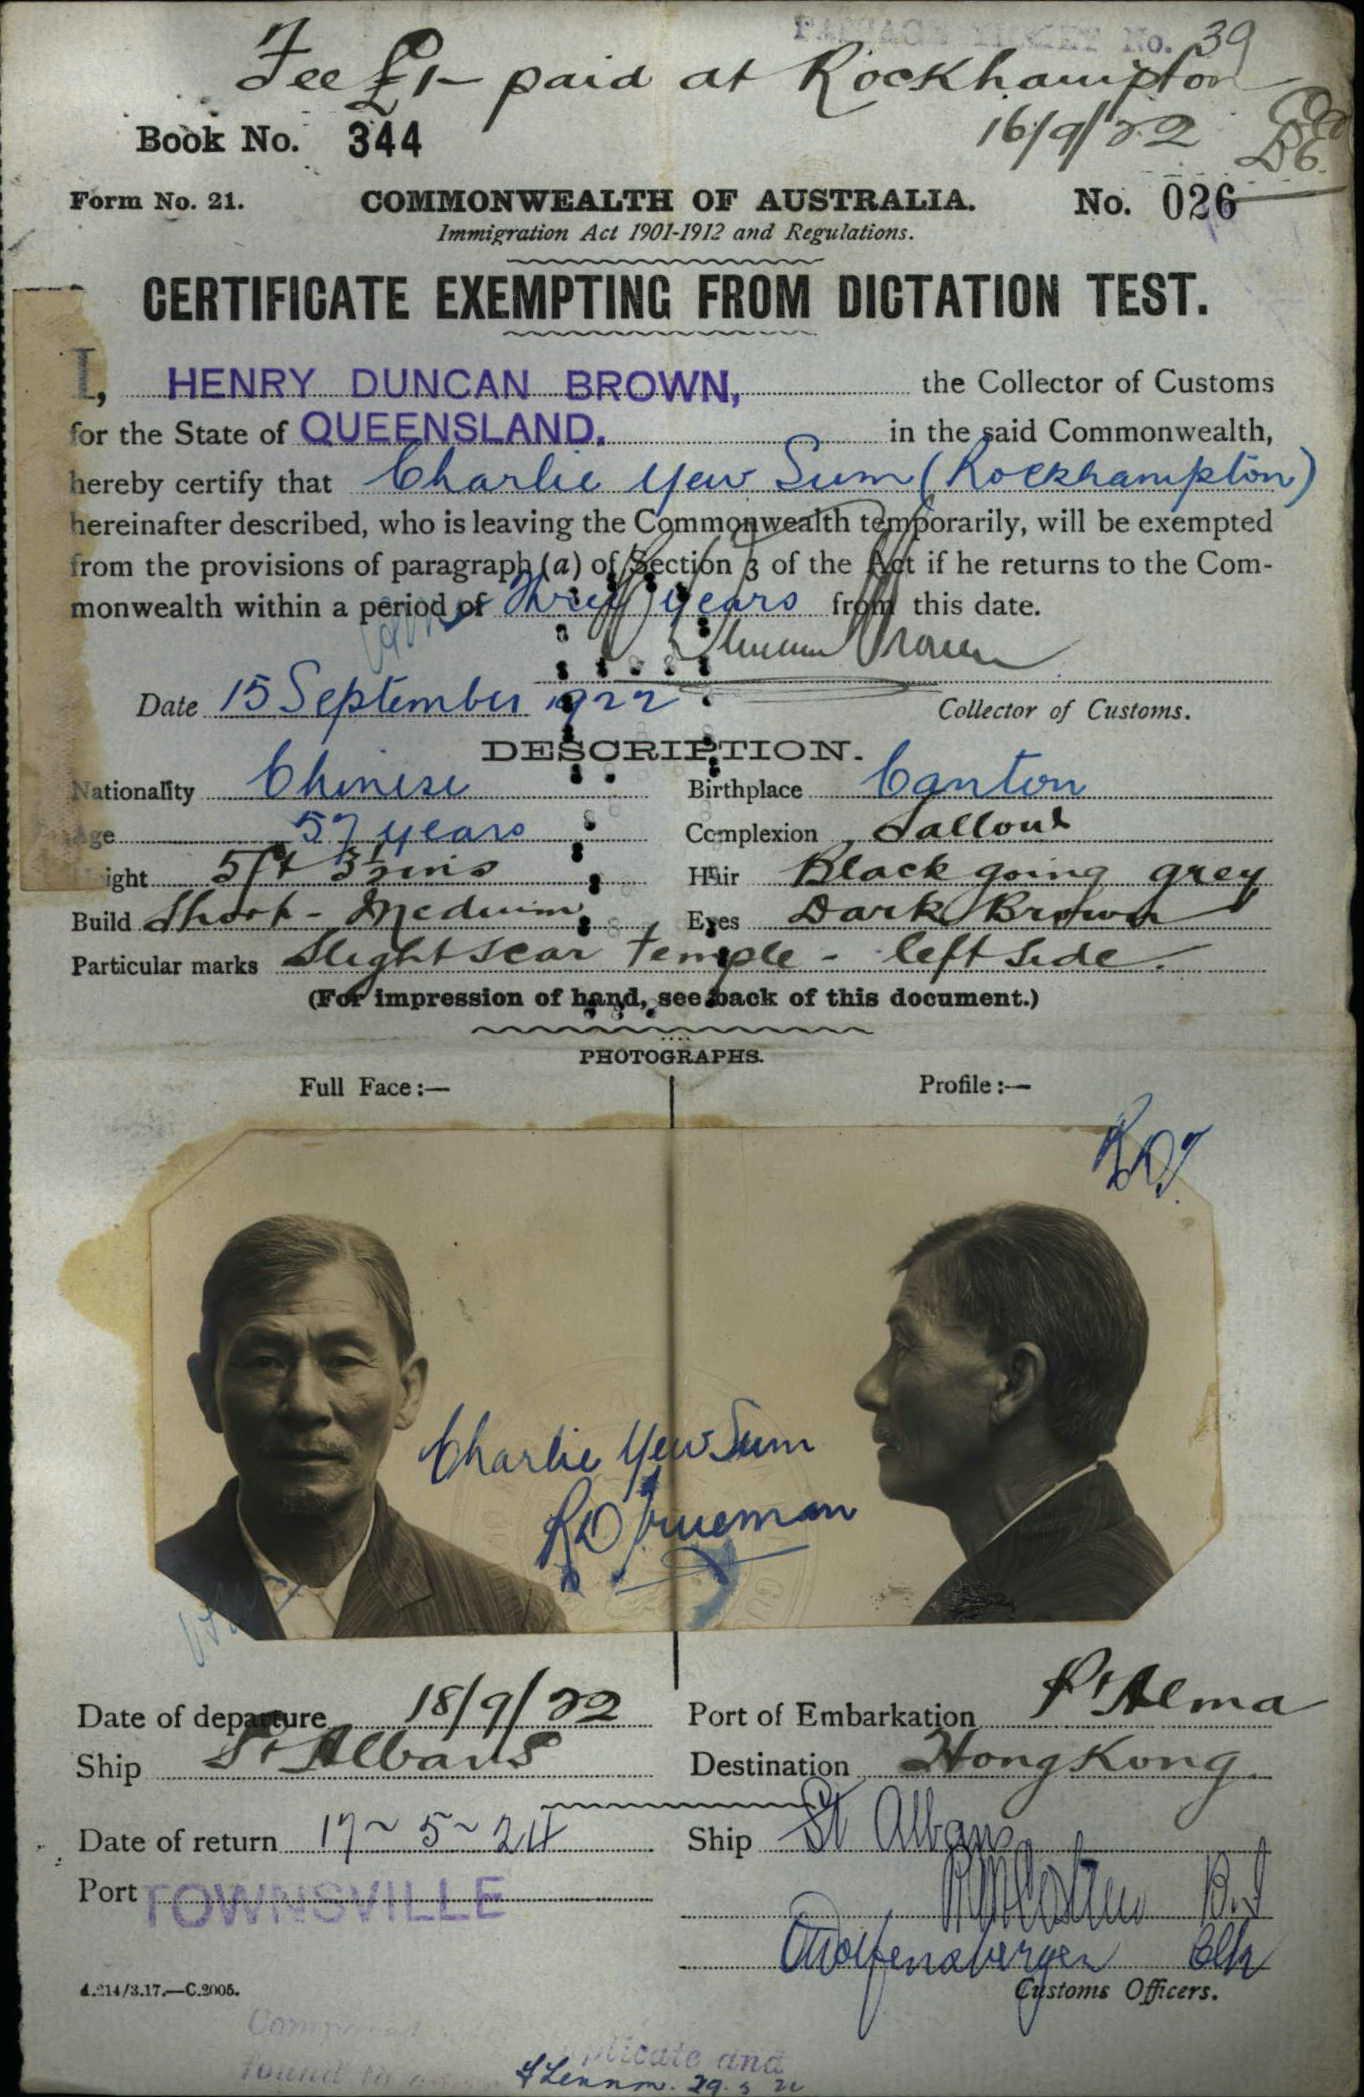 PASSAGE TICKET No. 39
Fee £1- paid at Rockhampton
16/9/22
Book No. 344
Form No. 21. COMMONWEALTH OF AUSTRALIA. No. 026
Immigration Act 1901-1912 and Regulations.
CERTIFICATE EXEMPTING FROM DICTATION TEST.
I, HENRY DUNCAN BROWN, the Collector of Customs
for the State of QUEENSLAND. in the said Commonwealth,
hereby certify that Charlie Yew Sum (Rockhampton)
hereinafter described, who is leaving the Commonwealth temporarily, will be exempted
from the provisions of paragraph (a) of Section 3 of the Act if he returns to the Com-
monwealth within a period of Three years from this date.
H Duncan Brown
Date 15 September 1922 Collector of Customs.
DESCRIPTION.
Nationality Chinese Birthplace Canton
Age 57 years Complexion Sallow
ight 5ft 3½ins Hair Black going grey
Build Short - Medium Eyes Dark Brown
Particular marks Slight scar temple - left side.
(For impression of hand, see back of this document.)
PHOTOGRAPHS.
Full Face:— Profile:—
RDT
Charlie Yew Sum
RD Trueman
Date of departure 18/9/22 Port of Embarkation Pt Alma
Ship St Albans Destination Hong Kong
Date of return 17~5~24 Ship St Albans
Port TOWNSVILLE
Customs Officers.
A.214/3.17.—C.2005.
Compared plicate and
found to
29.5.24